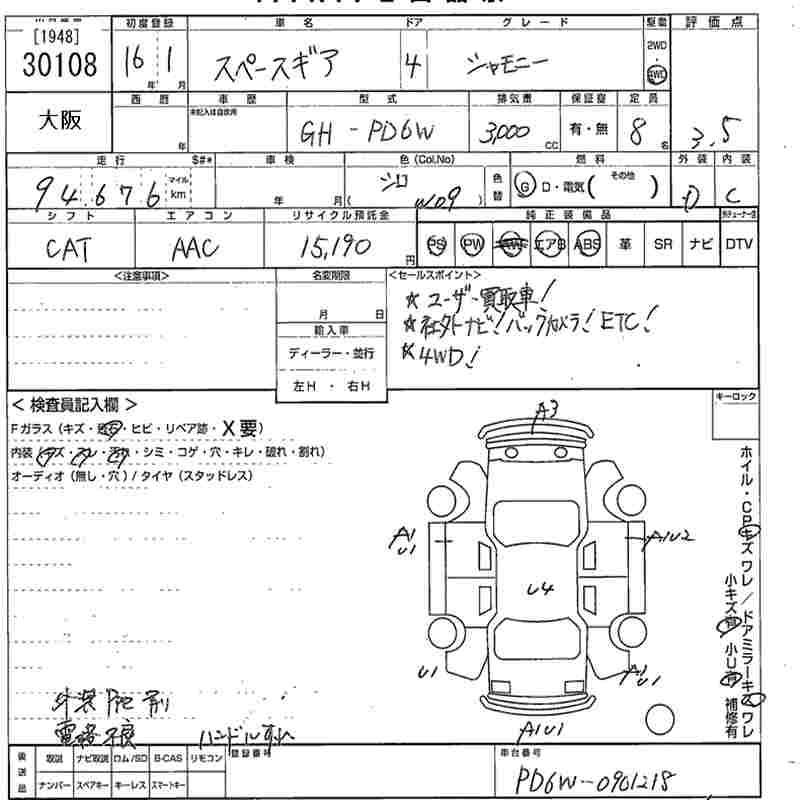 [1948]
30108
初度登録 車名 ドア グレード 駆動 評価点
16年 1月 スペースギア 4 シャモニー 2WD・4WD 3.5
大阪
西暦 車歴 型式 排気量 保証書 定員
未記入は自家用
年 GH-PD6W 3,000cc 有・無 8名
走行 S#* 車検 色(Col.No) 燃料 外装 内装
94,676 マイル km 年 月 シロ (W09) 色替 G・D・電気( その他 ) D C
シフト エアコン リサイクル預託金 純正装備品
CAT AAC 15,190円 PS PW AW エアB ABS 革 SR ナビ DTV
<注意事項> 名変期限 <セールスポイント>
月 日
★ユーザー買取車!
★社外ナビ!バックカメラ!ETC!
★4WD!
輸入車
ディーラー・並行
左H・右H
<検査員記入欄> キーロック
Fガラス(キズ・飛石・ヒビ・リペア跡・X要)
内装(キズ・スレ・汚れ・シミ・コゲ・穴・キレ・破れ・割れ)
オーディオ(無し・穴)/タイヤ(スタッドレス)
A3
A1
U1
A1U2
U4
U1
A1U1
A1U1
ホイル・CPキズ ワレ/ドアミラーキズ ワレ
小キズ有 小U有 補修有
外装
ハンドルすれ
後送品 取説 ナビ取説 ロム/SD B-CAS リモコン 登録番号 車台番号
ナンバー スペアキー キーレス スマートキー
PD6W-0901218